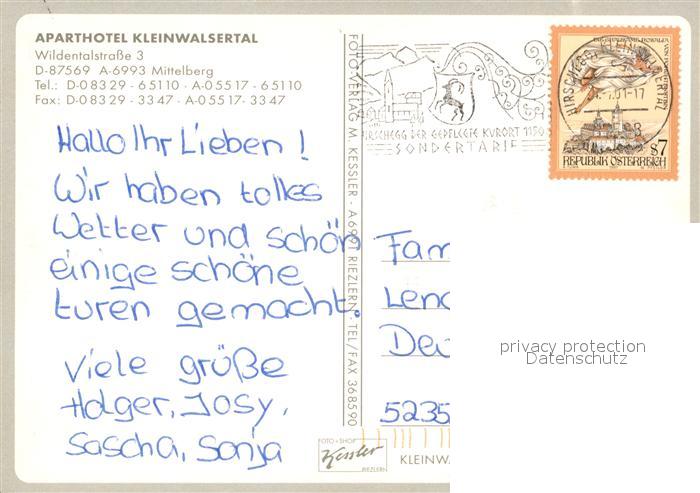 APARTHOTEL KLEINWALSERTAL
Wildentalstraße 3
D-87569 A-6993 Mittelberg
Tel.: D-0 83 29 - 65110 · A-0 55 17 - 65110
Fax: D-0 83 29 - 33 47 · A-0 55 17- 33 47
Hallo Ihr Lieben!
Wir haben tolles
Wetter und schön
einige schöne
turen gemacht.
Viele größe
Holger, Josy,
Sascha, Sonja
FOTO-VERLAG M. KESSLER - A-6991 RIEZLERN, TEL/FAX 368590
HIRSCHEGG DER GEPFLEGTE KURORT 1150
SONDERTARIF
HIRSCHEGG, KLEINWALSERTAL
-17
REPUBLIK ÖSTERREICH
S7
Fam
Len
Deu
5235
privacy protection
Datenschutz
FOTO + SHOP
Kessler
RIEZLERN
KLEINWA